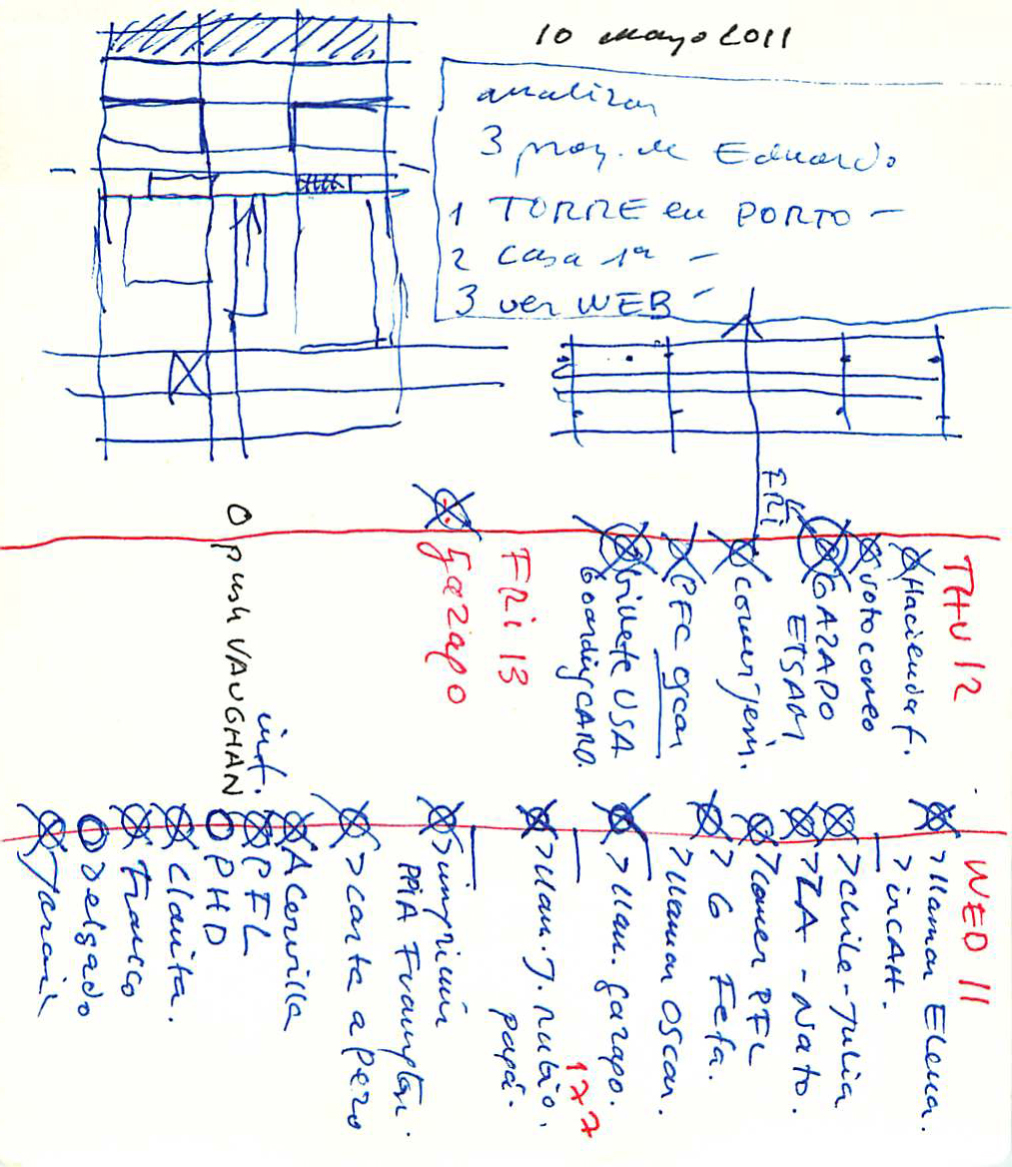 10 mayo 2011
analizar
3 proy. de Eduardo
1 TORRE en PORTO -
2 Casa 1ª -
3 ver WEB -
FRI
THU 12
Hacienda f.
voto correo
GAZAPO
ETSAM
comer jeni.
PFC oscar
billete USA
boarding CARD.
FRI 13
gazapo
O push VAUGHAN
WED 11
> llamar Elena.
> ir CAH.
> chile - Julia
> ZA - Nato.
> comer PFL
> G Fefa.
> llamar Oscar.
> llam. gazapo.
177
> llam. J. rubio.
papá.
> imprimir
PPIA Frampton.
> carta a Pezo
A Cervilla
PFL
inf.
PHD
Clarita.
Franco
Delgado